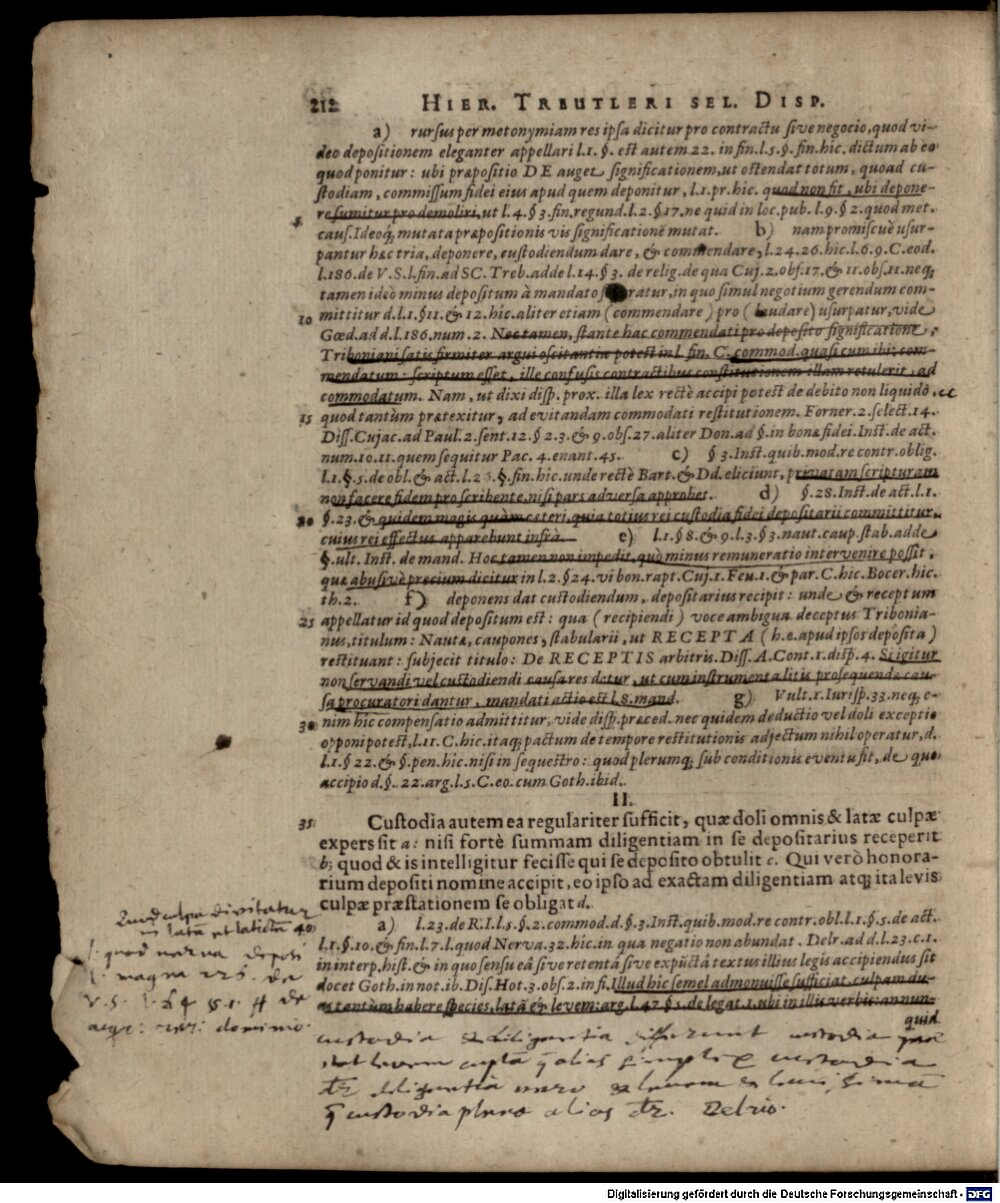 212 HIER. TREUTLERI SEL. DISP.
a) rursus per metonymiam res ipsa dicitur pro contractu sive negocio, quod vi-
deo depositionem eleganter appellari l.1. §. est autem 22. in fin. l.5. §. fin. hic. dictum ab eo
quod ponitur: ubi præpositio DE auget significationem, ut ostendat totum, quoad cu-
stodiam, commissum fidei eius apud quem deponitur, l.1. pr. hic. quod non fit, ubi depone-
re sumitur pro demoliri, ut l.4. §3. fin. regund. l.2. §17. ne quid in loc. pub. l.9. §2. quod met.
5 caus. Ideoq; mutata præpositionis vis significationē mutat. b) nam promiscuè usur-
pantur hæc tria, deponere, custodiendum dare, & commendare, l.24.26. hic. l.6.9. C. eod.
l.186. de V. S. l. fin. ad SC. Treb. adde l.14. §3. de relig. de qua Cuj. 2. obs. 17. & 11. obs. 11. neq;
tamen ideò minus depositum à mandato ratur, in quo simul negotium gerendum com-
10 mittitur d.l.1. §11. & 12. hic. aliter etiam (commendare) pro (laudare) usurpatur, vide
Gœd. ad d.l.186. num. 2. Nec tamen, stante hac commendati pro deposito significatione,
Triboniani satis firmiter argui oscitantia potest in l. fin. C. commod. quasi cum ibi: com-
mendatum: scriptum esset, ille confusis contractibus constitutionem illam retulerit, ad
commodatum. Nam, ut dixi disp. prox. illa lex rectè accipi potest de debito non liquidò,
15 quod tantùm prætexitur, ad evitandam commodati restitutionem. Forner. 2. select. 14.
Diss. Cujac. ad Paul. 2. sent. 12. § 2.3. & 9. obs. 27. aliter Don. ad §. in bonæ fidei. Inst. de act.
num. 10.11. quem sequitur Pac. 4. enant. 45. c) § 3. Inst. quib. mod. re contr. oblig.
l.1. §. 5. de obl. & act. l.26. §. fin. hic. unde rectè Bart. & Dd. eliciunt, privatam scripturam
non facere fidem pro scribente, nisi pars adversa approbet. d) §. 28. Inst. de act. l.1.
20 §. 23. & quidem magis quàm cæteri, quia totius rei custodia fidei depositarii committitur,
cuius rei effectus apparebunt infrà. e) l.1. §8. & 9. l.3. §3. naut. caup. stab. adde
§. ult. Inst. de mand. Hoc tamen non impedit, quò minus remuneratio intervenire possit,
quæ abusivè precium dicitur in l.2. §24. vi bon. rapt. Cuj. 1. Feu. 1. & par. C. hic. Bocer. hic.
th. 2. f) deponens dat custodiendum, depositarius recipit: unde & receptum
25 appellatur id quod depositum est: qua (recipiendi) voce ambigua deceptus Tribonia-
nus, titulum: Nautæ, caupones, stabularii, ut RECEPTA (h.e. apud ipsos deposita)
restituant: subjecit titulo: De RECEPTIS arbitris. Diss. A. Cont. 1. disp. 4. Si igitur
non servandi vel custodiendi causa res detur, ut cum instrumenta litis prosequendæ cau-
sa procuratori dantur, mandati actio est l. 8. mand. g) Vult. 1. Jurisp. 33. neq; e-
30 nim hic compensatio admittitur, vide disp. præced. nec quidem deductio vel doli exceptio
opponi potest, l.11. C. hic. itaq; pactum de tempore restitutionis adjectum nihil operatur, d.
l.1. §22. & §. pen. hic. nisi in sequestro: quod plerumq; sub conditionis eventu fit, de quo
accipio d. §. 22. arg. l.5. C. eo. cum Goth. ibid.
II.
35 Custodia autem ea regulariter sufficit, quæ doli omnis & latæ culpæ
expers sit a: nisi fortè summam diligentiam in se depositarius receperit
b; quod & is intelligitur fecisse qui se deposito obtulit c. Qui verò honora-
rium depositi nomine accipit, eo ipso ad exactam diligentiam atq; ita levis
culpæ præstationem se obligat d.
40 a) l.23. de R. I. l.5. §.2. commod. d. §.3. Inst. quib. mod. re contr. obl. l.1. §.5. de act.
l.1. §.10. & fin. l.7. l. quod Nerva. 32. hic. in qua negatio non abundat. Delr. ad d.l.23. c.1.
in interp. hist. & in quo sensu eâ sive retentâ sive expūctâ textus illius legis accipiendus sit
docet Goth. in not. ib. Dis. Hot. 3. obs. 2. in fi. Illud hic semel admonuisse sufficiat, culpam du-
as tantùm habere species, latā & levem: arg. l.47. §5. de legat. 1. ubi in illis verbis: an nun-
quid
Quod culpa dividatur
in latā et
l. quod nerva deposi
l. magna 226. de
V. S. l. 54 § 1. ff de
acqr: rer: dominio.
custodia & diligentia differunt custodia
levem culpā alias simplex custodia
dr diligentia vero & levem & levissimā
custodia plena alias dr. Delrio.
Digitalisierung gefördert durch die Deutsche Forschungsgemeinschaft - DFG